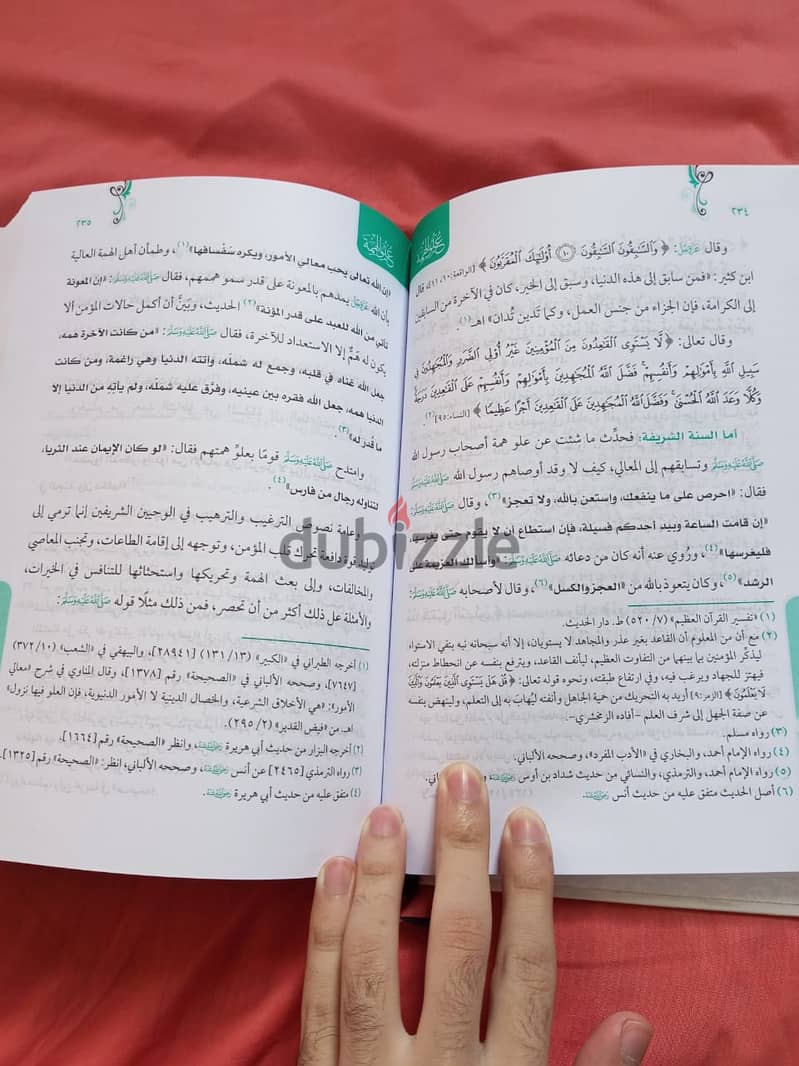 ٢٣٤
علو الهمة
وقال عز وجل: ﴿ وَالسَّابِقُونَ السَّابِقُونَ ۝١٠ أُوْلَٰٓئِكَ الْمُقَرَّبُونَ ﴾ [الواقعة: ١٠، ١١]، قال
ابن كثير: «فمن سابق إلى هذه الدنيا، وسبق إلى الخير، كان في الآخرة من السابقين
إلى الكرامة، فإن الجزاء من جنس العمل، وكما تَدين تُدان» اهـ(١).
وقال تعالى: ﴿ لَّا يَسْتَوِى الْقَاعِدُونَ مِنَ الْمُؤْمِنِينَ غَيْرُ أُوْلِى الضَّرَرِ وَالْمُجَاهِدُونَ فِى
سَبِيلِ اللَّهِ بِأَمْوَالِهِمْ وَأَنفُسِهِمْ فَضَّلَ اللَّهُ الْمُجَاهِدِينَ بِأَمْوَالِهِمْ وَأَنفُسِهِمْ عَلَى الْقَاعِدِينَ دَرَجَةً
وَكُلًّا وَعَدَ اللَّهُ الْحُسْنَىٰ وَفَضَّلَ اللَّهُ الْمُجَاهِدِينَ عَلَى الْقَاعِدِينَ أَجْرًا عَظِيمًا ﴾ [النساء: ٩٥](٢).
أما السنة الشريفة: فحدِّث ما شئت عن علو همة أصحاب رسول الله
ﷺ وتسابقهم إلى المعالي، كيف لا وقد أوصاهم رسول الله ﷺ
فقال: «احرص على ما ينفعك، واستعن بالله، ولا تعجز»(٣)، وقال ﷺ:
«إن قامت الساعة وبيد أحدكم فسيلة، فإن استطاع أن لا يقوم حتى يغرسها
فليغرسها»(٤)، ورُوي عنه أنه كان من دعائه ﷺ: «وأسألك العزيمة على
الرشد»(٥)، وكان يتعوذ بالله من «العجز والكسل»(٦)، وقال لأصحابه ﷺ:
(١) «تفسير القرآن العظيم» (٧/ ٥٢٠) ط. دار الحديث.
(٢) مع أن من المعلوم أن القاعد بغير عذر والمجاهد لا يستويان، إلا أنه سبحانه نبه بنفي الاستواء
ليذكِّر المؤمنين بما بينهما من التفاوت العظيم، ليأنف القاعد، ويرفع بنفسه عن انحطاط منزلته،
فيهتز للجهاد ويرغب فيه، وفي ارتفاع طبقته، ونحوه قوله تعالى: ﴿ قُلْ هَلْ يَسْتَوِى الَّذِينَ يَعْلَمُونَ وَالَّذِينَ
لَا يَعْلَمُونَ ﴾ [الزمر: ٩] أريد به التحريك من حمية الجاهل وأنفته ليُهابَ به إلى التعلم، ولينهض بنفسه
عن صفة الجهل إلى شرف العلم -أفاده الزمخشري-.
(٣) رواه مسلم.
(٤) رواه الإمام أحمد، والبخاري في «الأدب المفرد»، وصححه الألباني.
(٥) رواه الإمام أحمد، والترمذي، والنسائي من حديث شداد بن أوس
(٦) أصل الحديث متفق عليه من حديث أنس رضي الله عنه.
٢٣٥
علو الهمة
«إن الله تعالى يحب معالي الأمور، ويكره سَفْسافها»(١)، وطمأن أهل الهمة العالية
بأن الله عز وجل يمدهم بالمعونة على قدر سمو هممهم، فقال ﷺ: «إن المعونة
تأتي من الله للعبد على قدر المؤنة»(٢) الحديث، وبيَّن أن أكمل حالات المؤمن ألا
يكون له هَمٌّ إلا الاستعداد للآخرة، فقال ﷺ: «من كانت الآخرة همه،
جعل الله غناه في قلبه، وجمع له شمله، وأتته الدنيا وهي راغمة، ومن كانت
الدنيا همه، جعل الله فقره بين عينيه، وفرَّق عليه شمله، ولم يأتِهِ من الدنيا إلا
ما قُدر له»(٣).
وامتدح ﷺ قومًا بعلوِّ همتهم فقال: «لو كان الإيمان عند الثريا،
لتناوله رجال من فارس»(٤).
وعامة نصوص الترغيب والترهيب في الوحيين الشريفين إنما ترمي إلى
توليد قوة دافعة تحرك قلب المؤمن، وتوجهه إلى إقامة الطاعات، وتجنب المعاصي
والمخالفات، وإلى بعث الهمة وتحريكها واستحثاثها للتنافس في الخيرات،
والأمثلة على ذلك أكثر من أن تحصر، فمن ذلك مثلًا قوله ﷺ:
(١) أخرجه الطبراني في «الكبير» (١٣/ ١٣١) [٢٨٩٤١]، والبيهقي في «الشعب» (١٠/ ٣٧٢)
[٧٦٤٧]، وصححه الألباني في «الصحيحة» رقم [١٣٧٨]، وقال المناوي في شرح «معالي
الأمور»: «هي الأخلاق الشرعية، والخصال الدينية لا الأمور الدنيوية، فإن العلو فيها نزول»
اهـ. من «فيض القدير» (٢/ ٢٩٥).
(٢) أخرجه البزار من حديث أبي هريرة رضي الله عنه، وانظر «الصحيحة» رقم [١٦٦٤].
(٣) رواه الترمذي [٢٤٦٥] عن أنس رضي الله عنه، وصححه الألباني، انظر: «الصحيحة» رقم [١٣٢٥].
(٤) متفق عليه من حديث أبي هريرة رضي الله عنه.
dubizzle